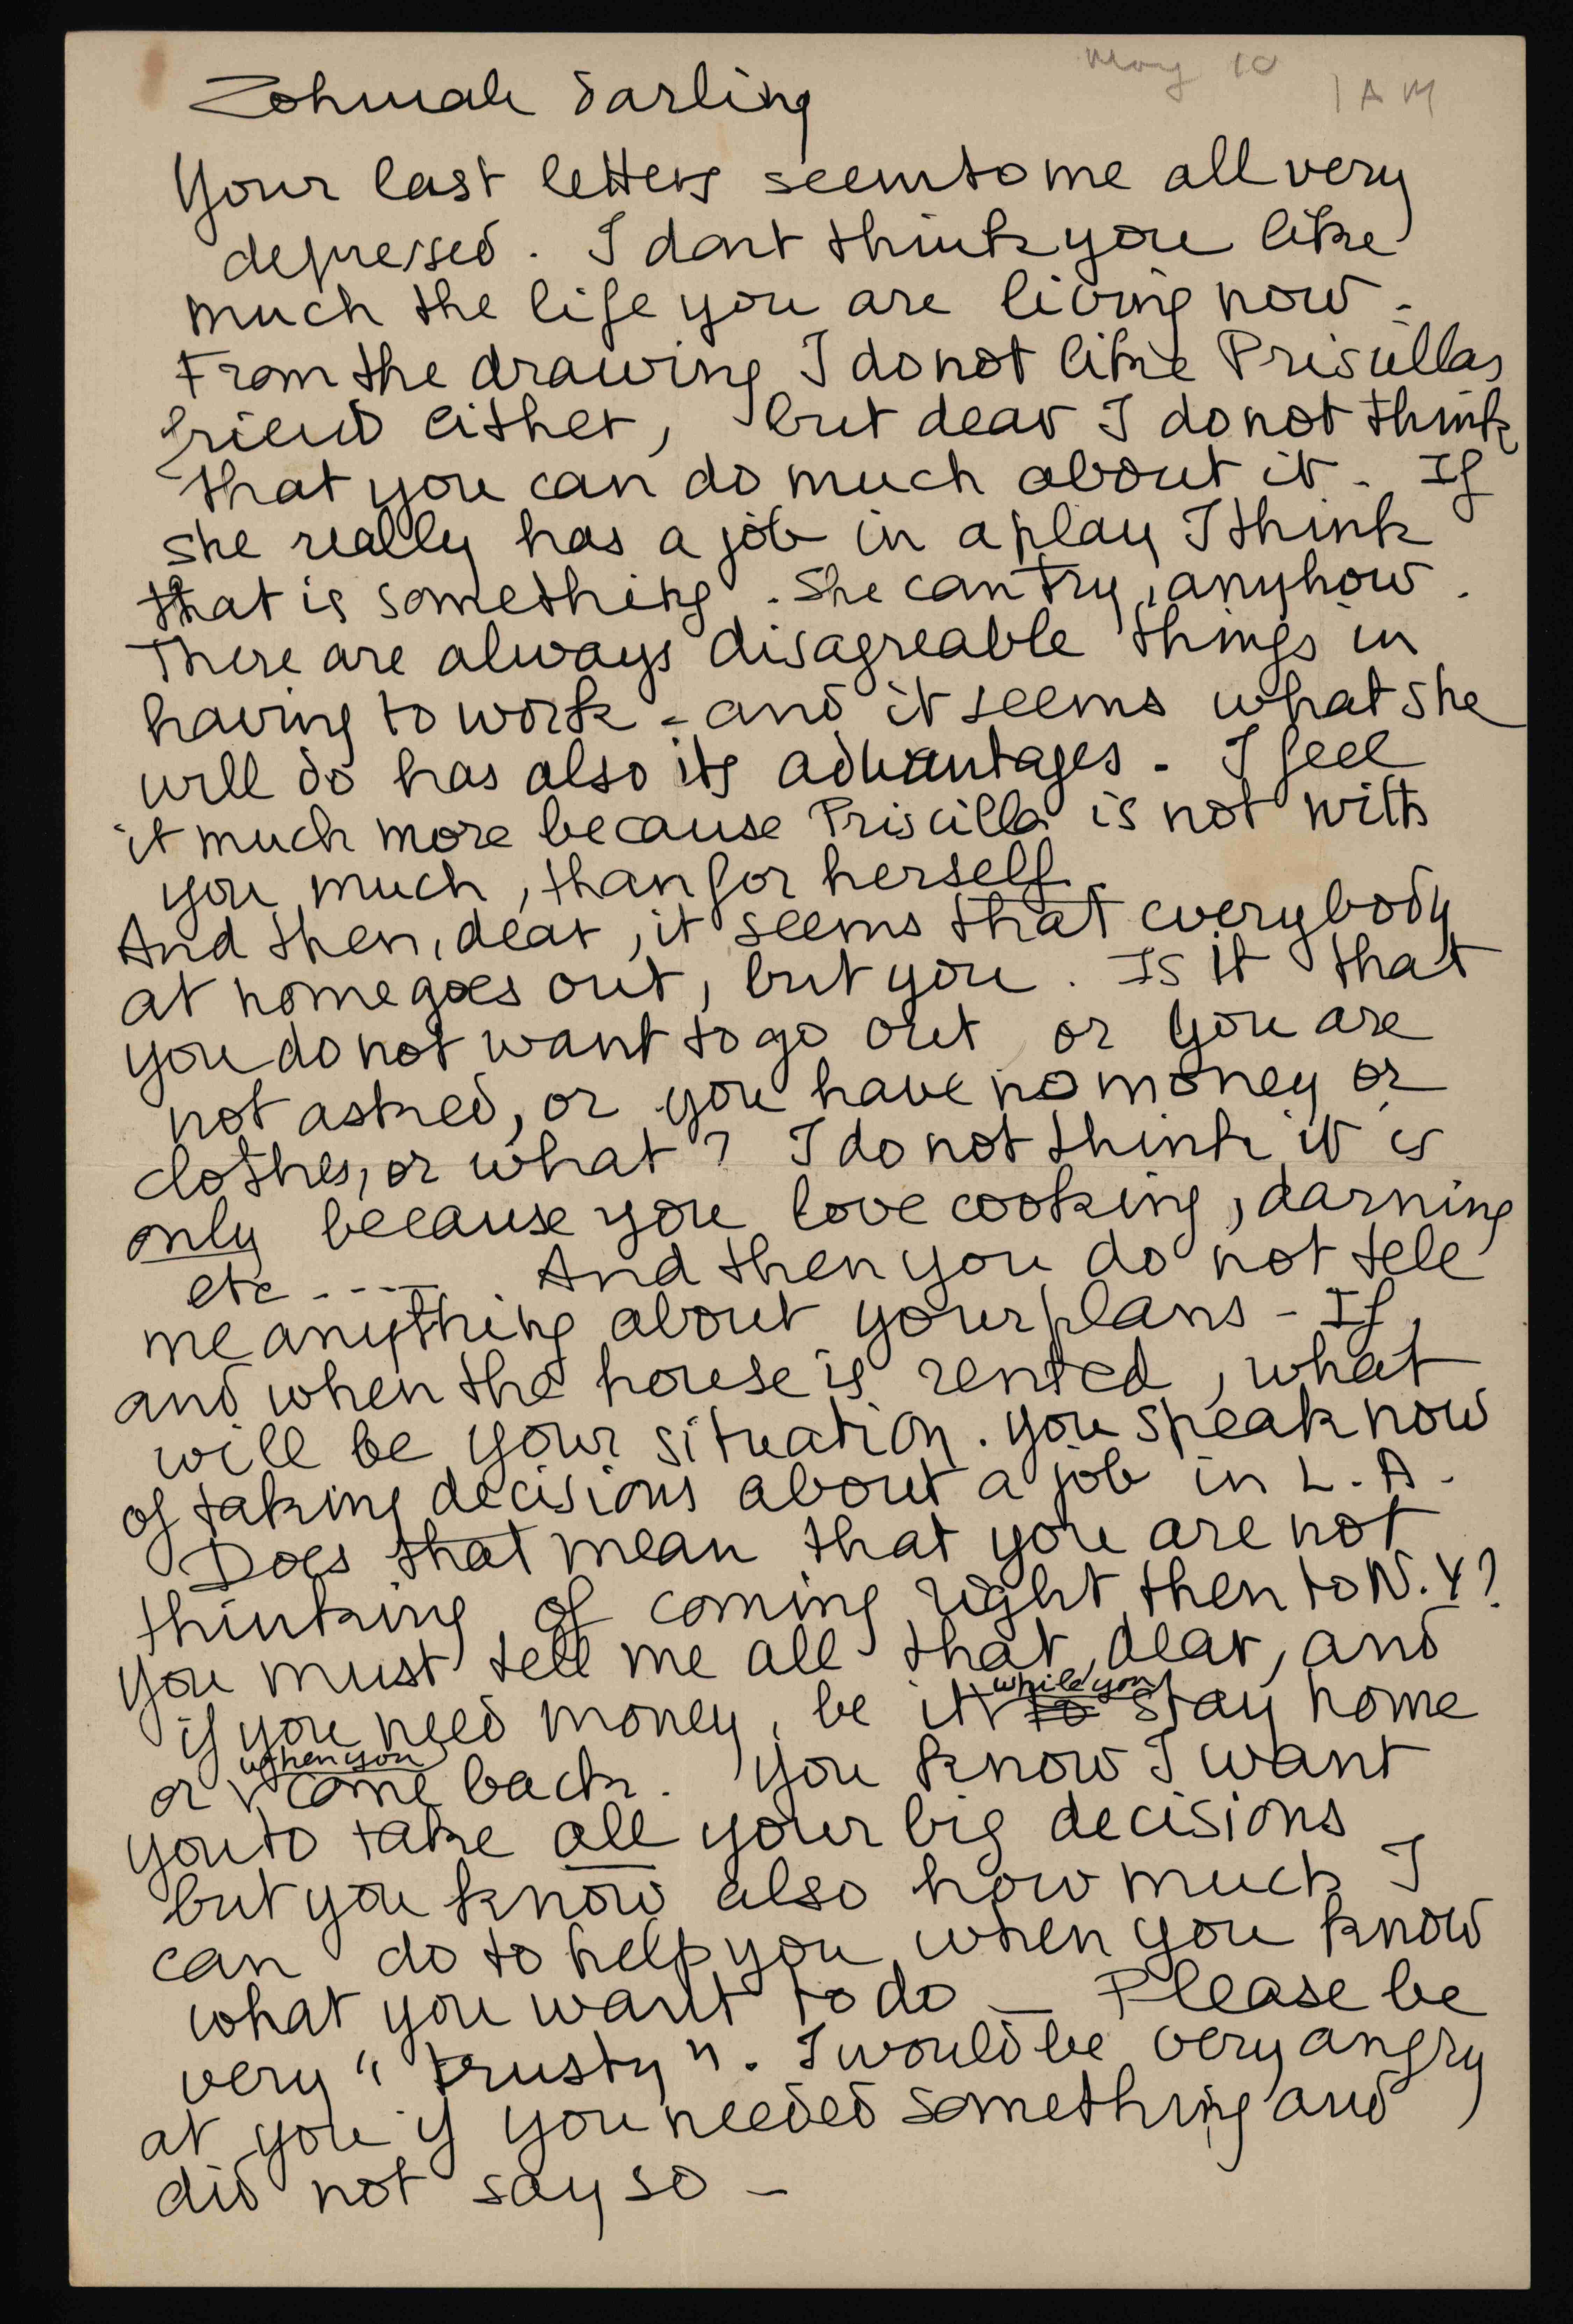 May 10
1 AM
Zohmah darling
Your last letters seem to me all very
depressed. I dont think you like
much the life you are living now -
From the drawing I do not like Priscillas
friend either, but dear I do not think
that you can do much about it - If
she really has a job in a play I think
that is something. She can try, anyhow.
There are always disagreable things in
having to work - and it seems what she
will do has also its advantages - I feel
it much more because Priscilla is not with
you much, than for herself.
And then, dear, it seems that everybody
at home goes out, but you. Is it that
you do not want to go out, or you are
not asked, or you have no money or
clothes, or what? I do not think it is
only because you love cooking, darning
etc ---- And then you do not tell
me anything about your plans - If,
and when the house is rented, what
will be your situation. You speak now
of taking decisions about a job in L.A.
Does that mean that you are not
thinking of coming right then to N.Y?
You must tell me all that, dear, and
if you need money, be it while you to stay home
or when you come back. You know I want
you to take all your big decisions
but you know also how much I
can do to help you when you know
what you want to do — Please be
very "trusty". I would be very angry
at you if you needed something and
did not say so -